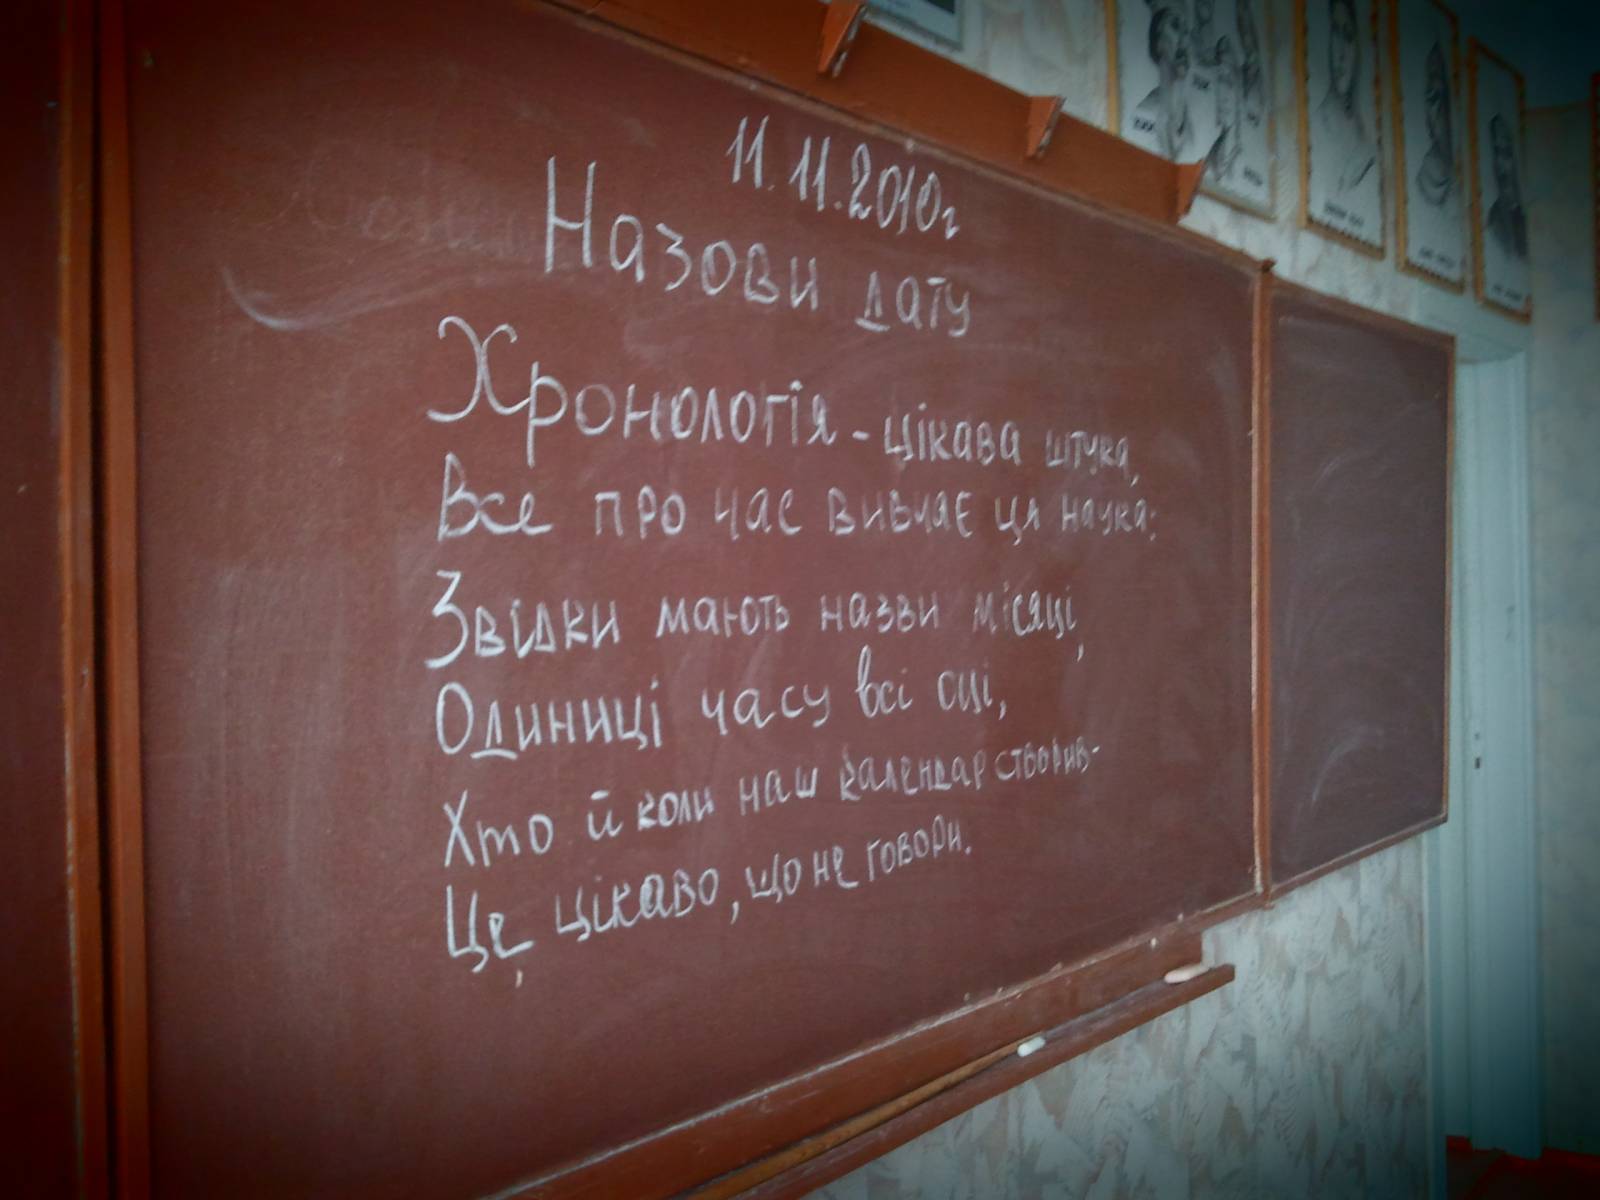 11.11.2010г
Назови дату
Хронологія - цікава штука,
Все про час вивчає ця наука:
Звідки мають назви місяці,
Одиниці часу всі оці,
Хто й коли наш календар створив-
Це, цікаво, що не говори.